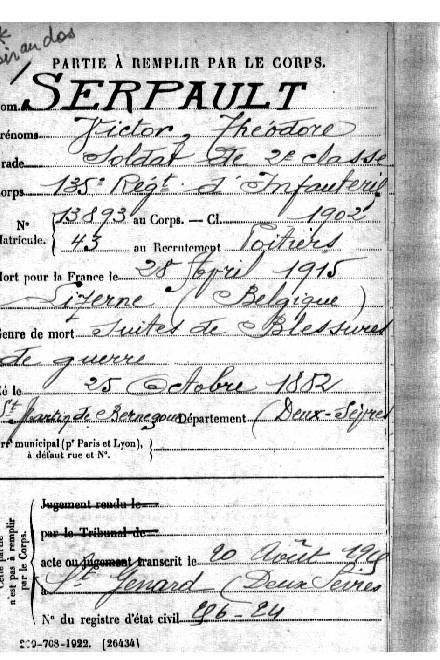 PARTIE À REMPLIR PAR LE CORPS.
om SERPAULT
rénoms Victor, Théodore
rade Soldat de 2e classe
orps 135e Régt d'Infanterie
N° 13893 au Corps. — Cl. 1902
atricule. 43 au Recrutement Poitiers
ort pour la France le 28 Avril 1915
Lizerne (Belgique)
enre de mort Suites de Blessures
de guerre
é le 25 Octobre 1882
St Martin de Bernegoue Département (Deux-Sèvres
rrt municipal (pr Paris et Lyon),
à défaut rue et N°.
Cette partie n'est pas à remplir par le Corps.
Jugement rendu le
par le Tribunal de
acte ou jugement transcrit le 20 Août
à St Génard (Deux Sèvres
N° du registre d'état civil
-708-1922. [26434]